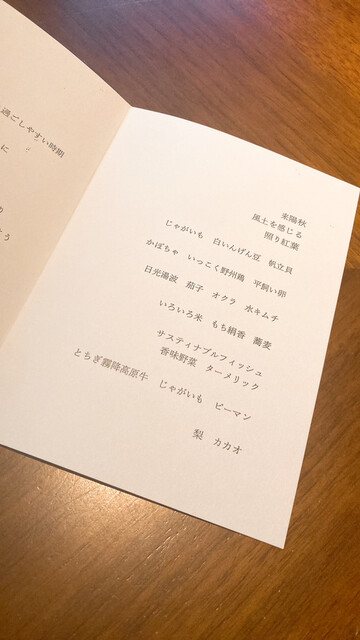 過ごしやすい時期
に
の
う
来陽秋
風土を感じる
照り紅葉
じゃがいも　白いんげん豆　帆立貝
かぼちゃ　いっこく野州鶏　平飼い卵
日光湯波　茄子　オクラ　水キムチ
いろいろ米　もち絹香　蕎麦
サスティナブルフィッシュ
香味野菜　ターメリック
とちぎ霧降高原牛　じゃがいも　ピーマン
梨　カカオ